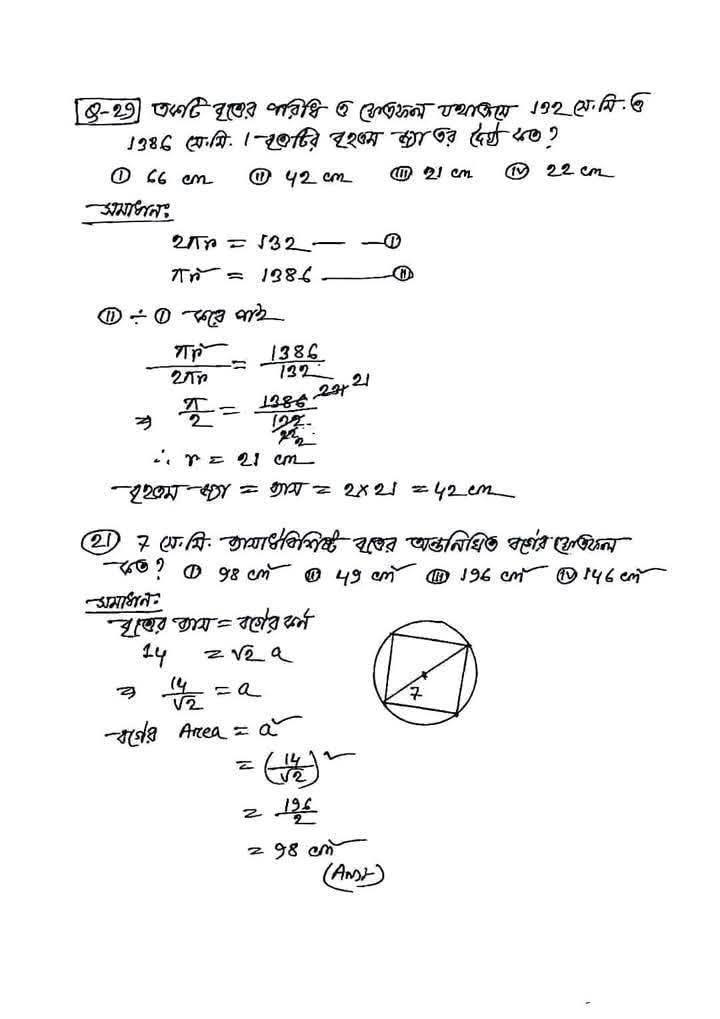 Q-29 একটি বৃত্তের পরিধি ও ক্ষেত্রফল যথাক্রমে 132 সে.মি. ও
1386 সে.মি. । বৃত্তটির বৃহত্তম জ্যা এর দৈর্ঘ্য কত?
(i) 66 cm (ii) 42 cm (iii) 21 cm (iv) 22 cm
সমাধান:
2πr = 132 — (i)
πr² = 1386 — (ii)
(ii) ÷ (i) করে পাই
πr²/2πr = 1386/132
⇒ π/2 = 1386/132 21
22 2
∴ r = 21 cm
বৃহত্তম জ্যা = ব্যাস = 2×21 = 42 cm
(21) 7 সে.মি. ব্যাসার্ধবিশিষ্ট বৃত্তের অন্তর্লিখিত বর্গের ক্ষেত্রফল
কত? (i) 98 cm² (ii) 49 cm² (iii) 196 cm² (iv) 146 cm²
সমাধান:
বৃত্তের ব্যাস = বর্গের কর্ণ
14 = √2 a
⇒ 14/√2 = a
7
বর্গের Area = a²
= (14/√2)²
= 196/2
= 98 cm²
(Ans)